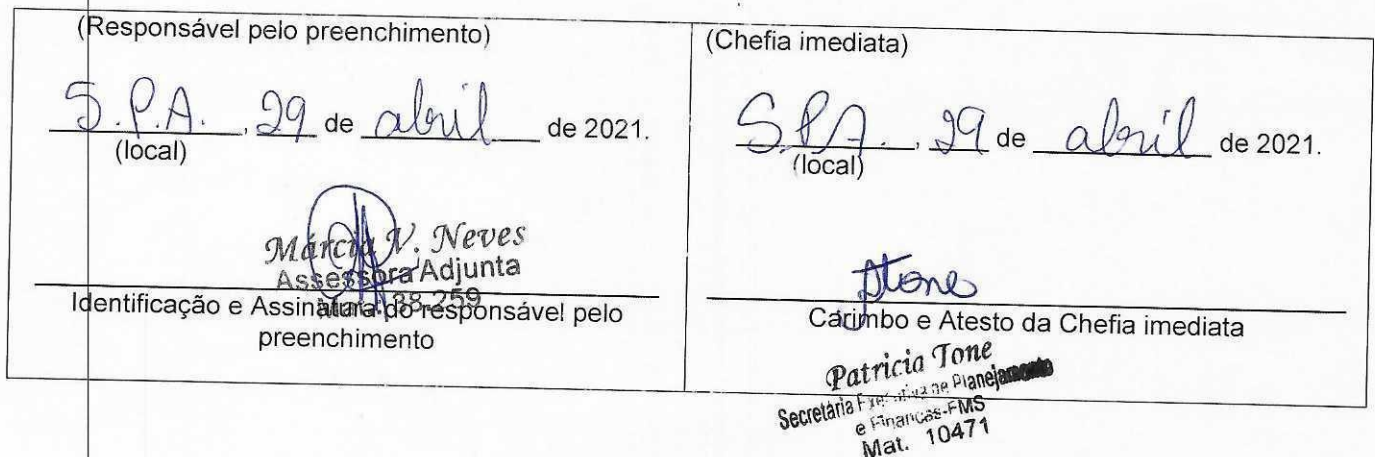 (Responsável pelo preenchimento)
S.P.A. , 29 de abril de 2021.
(local)
Márcia V. Neves
Assessora Adjunta
38.259
Identificação e Assinatura do responsável pelo
preenchimento
(Chefia imediata)
S.P.A. , 29 de abril de 2021.
(local)
ptone
Carimbo e Atesto da Chefia imediata
Patricia Tone
Secretária Executiva de Planejamento
e Finanças-FMS
Mat. 10471